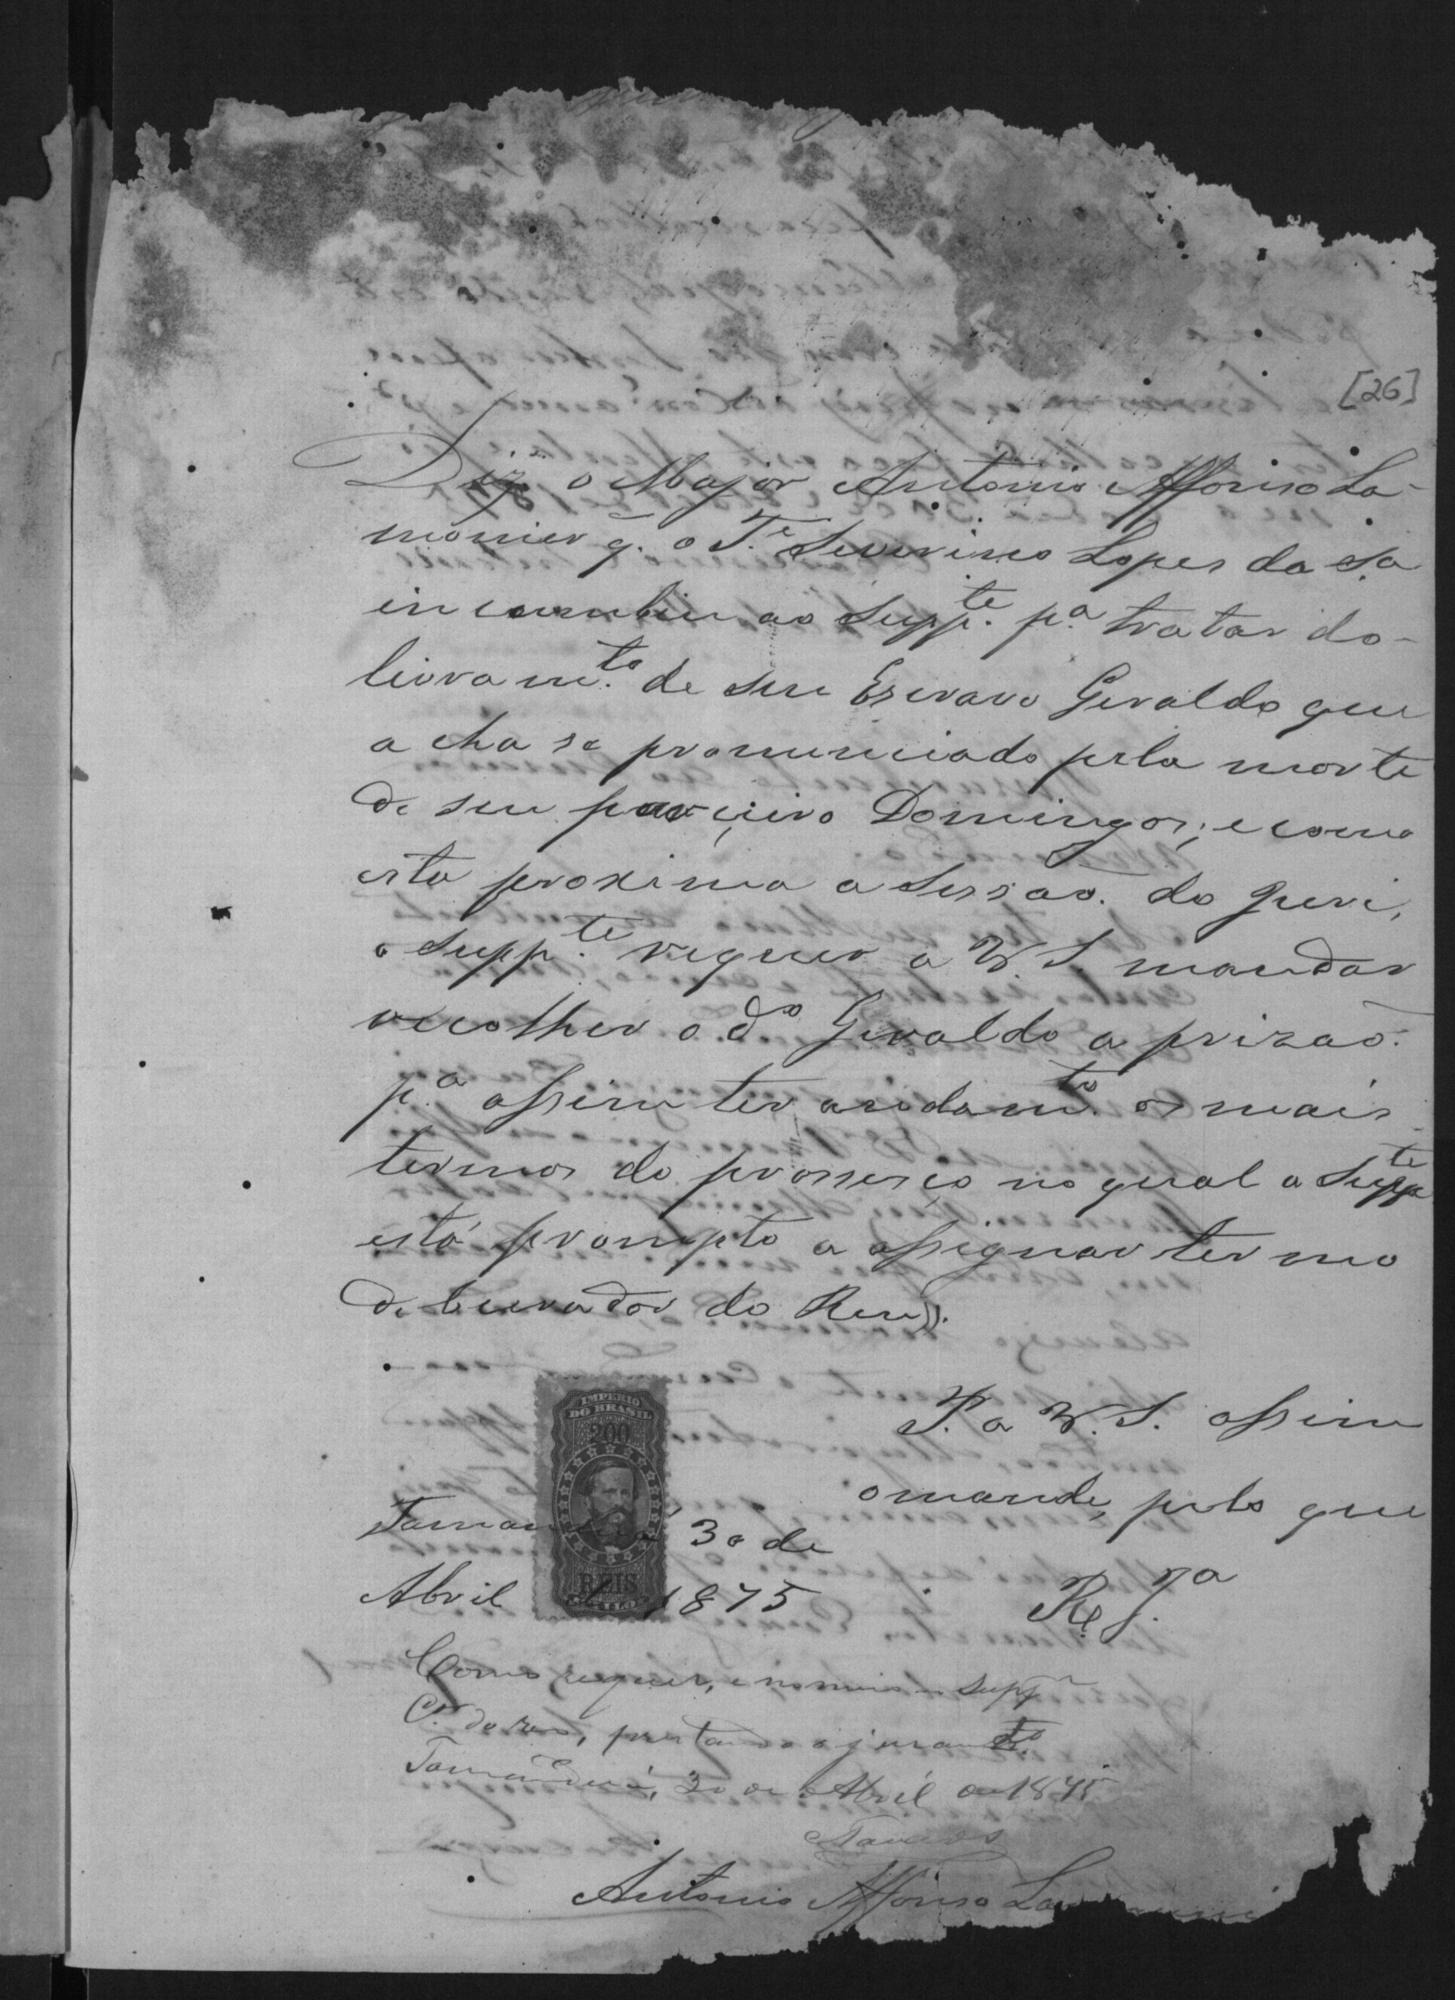 [26]
Diz o Major Antonio Affonso La-
mounier q. o Te. Severino Lopes da Sa
incumbiu ao Suppte. pa. tratar do
livramto. de seu Escravo Geraldo que
acha se pronunciado pela morte
de seu parceiro Domingos; e como
esta proxima a Sessão do Jury,
o Suppte. requer a V. S. mandar
recolher o do Geraldo a prizão
pa. assim ter andamto. os mais
termos do prossesço no qual o Suppte
está prompto a assignar termo
de Curador do Reu.
P. a V. S. assim
o mande, pelo que
R. Ja.
IMPERIO
DO BRASIL
200
REIS
Tamanduá 30 de
Abril de 1875
Como requer, e nomeio o suppe
Cor do reo, prestando o juramto.
Tamanduá, 30 de Abril de 1875
Tavares
Antonio Affonso Lamounier